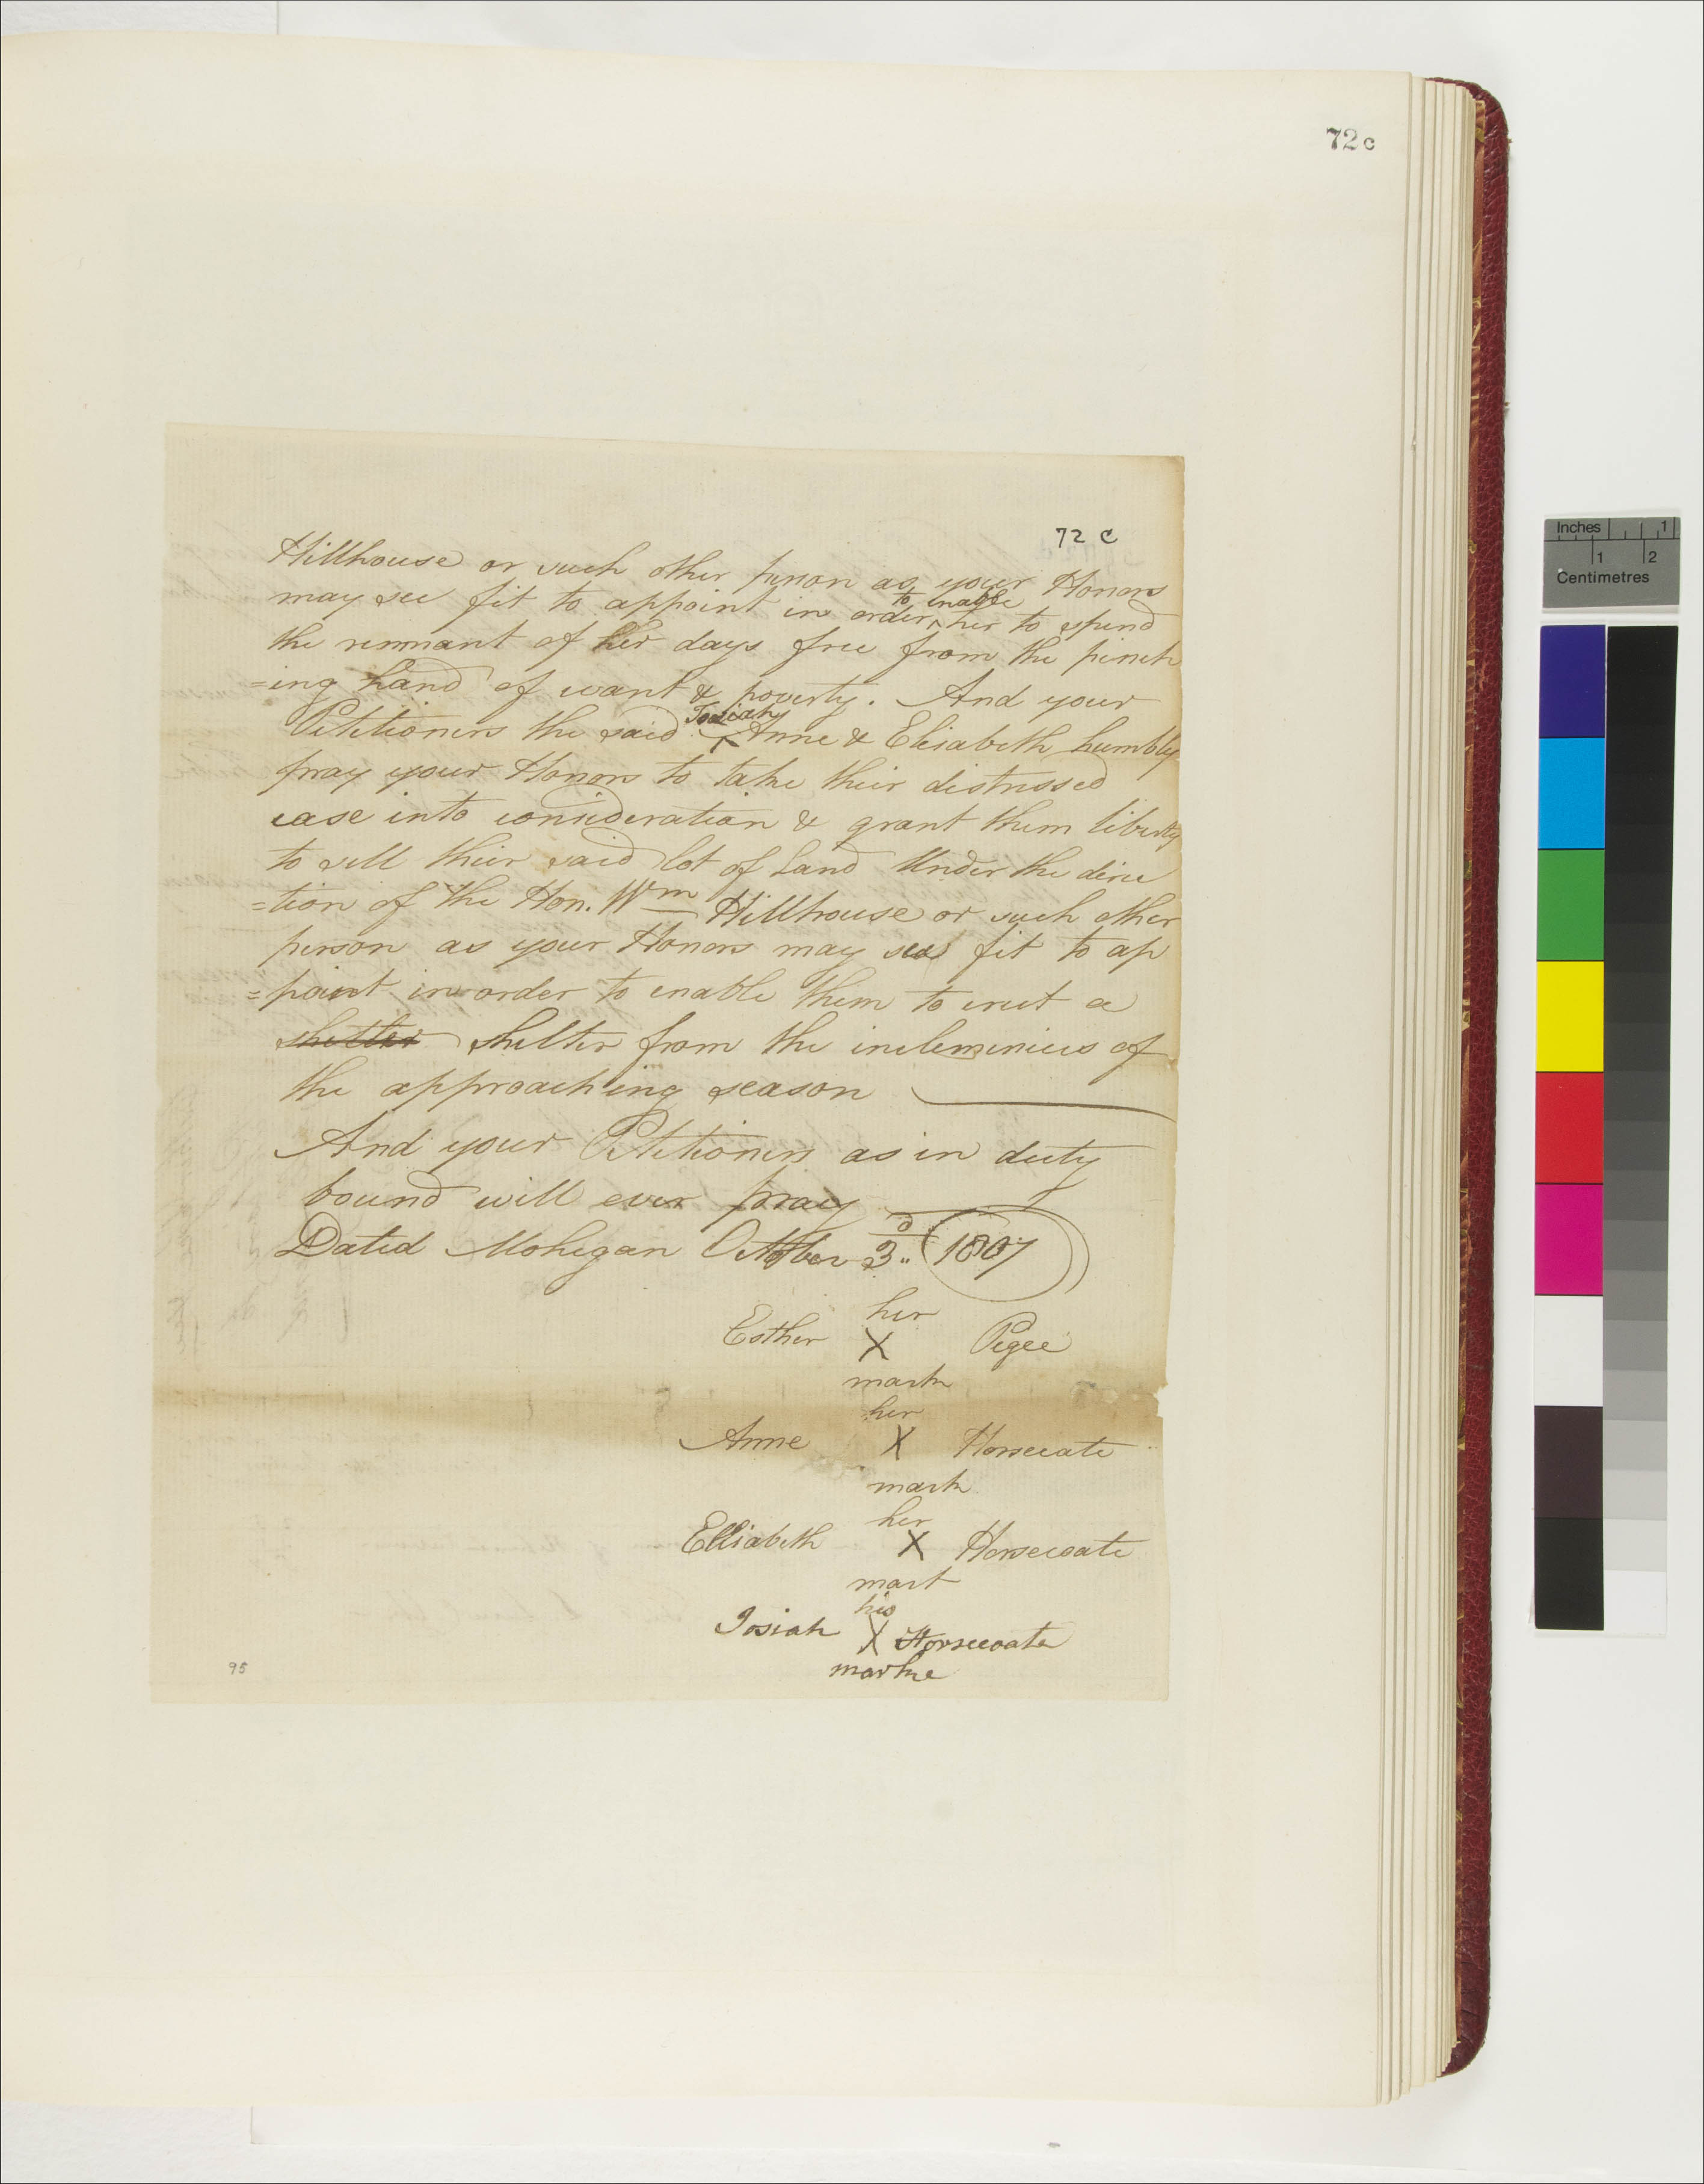 72c
72 C
Hillhouse or such other person as your Honors
may see fit to appoint in order ^ to enable her to spend
the remnant of her days free from the pinch
=ing hand of want & poverty. And your
Petitioners the said ^ Josiah Anne & Elisabeth humbly
pray your Honors to take their distressed
case into consideration & grant them liberty
to sell their said lot of Land Under the direc
=tion of the Hon. Wm Hillhouse or such other
person as your Honors may see fit to ap
=point in order to enable them to erect a
shelter shelter from the inclemincies of
the approaching season
And your Petitioners as in duty
bound will ever pray
Dated Mohegan October 3d.. 1807
her
Esther X Pegee
mark
her
Anne X Horsecoate
mark
her
Elisabeth X Horsecoate
mark
his
Josiah X Horsecoate
marke
95
Inches 1
1 2
Centimetres